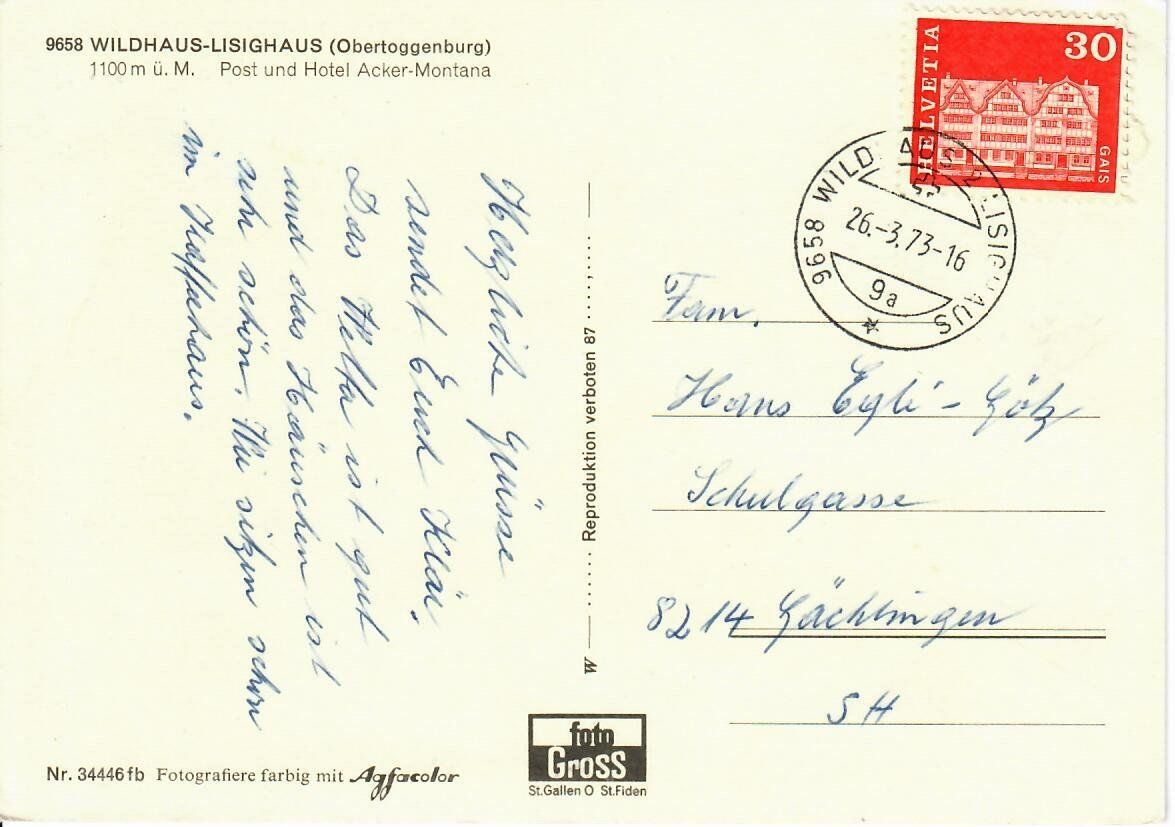 9658 WILDHAUS-LISIGHAUS (Obertoggenburg)
1100 m ü. M. Post und Hotel Acker-Montana
Herzliche Grüsse
sendet Euch Kläi.
Das Wetter ist gut
und das Häuschen ist
sehr schön. Wir sitzen schon
im Kaffehaus.
Nr. 34446 fb Fotografiere farbig mit Agfacolor
W Reproduktion verboten 87
foto
Gross
St.Gallen O St.Fiden
HELVETIA
30
GAIS
9658 WILDHAUS-LISIGHAUS
26.-3.73-16
9a
Fam.
Hans Egli-Götz
Schulgasse
8214 Gächlingen
SH